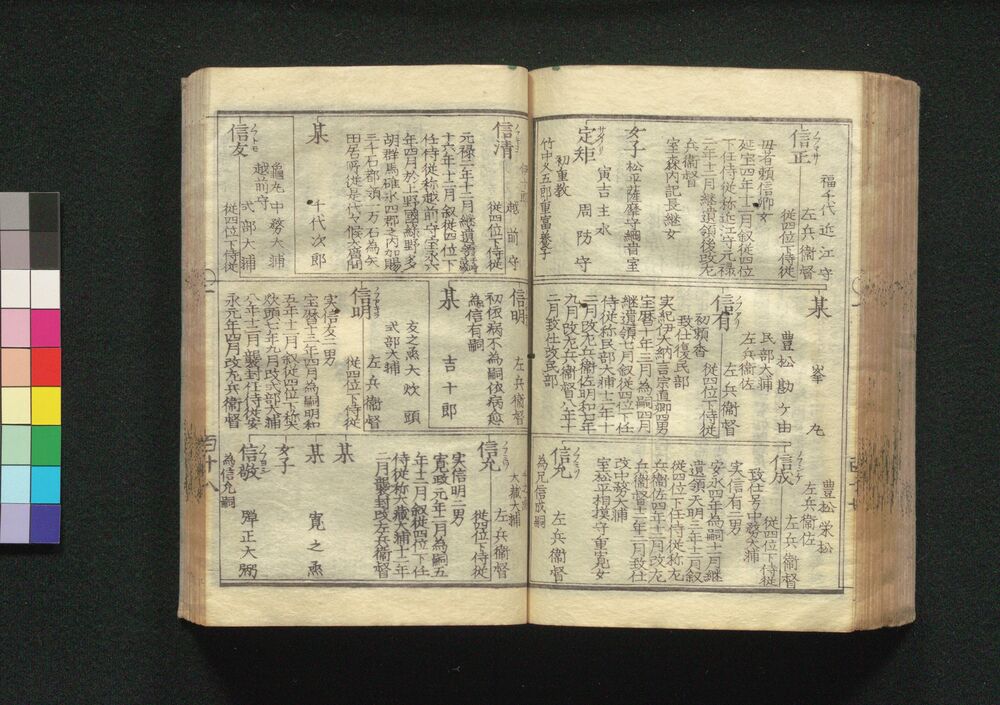 ノブマサ
信正
福千代 近江守
左兵衛督
従四位下侍従
母者頼信卿女
延宝四年十二月叙従四位
下任侍従称近江守元禄
二年十二月継遺領後改左
兵衛督
室森内記長継女
女子 松平薩摩守綱貴室
サダノリ
定矩
寅吉 主水
周防守
初重教
竹中又五郎重富養子
某
峯丸
豊松 勘ケ由
民部大輔
左兵衛佐
ノブアリ
信有
左兵衛督
従四位下侍従
初頼香
致仕復民部
実紀伊大納言宗直卿四男
宝暦十年三月為嗣四月
継遺領七月叙従四位下任
侍従称民部大輔十二年十
二月改左兵衛佐明和七年
九月改左兵衛督八年十
二月致仕改民部
豊松 栄松
左兵衛佐
ノブナリ
信成
左兵衛督
従四位下侍従
致仕号中務大輔
実信有二男
安永四年為嗣十二月継
遺領天明三年十二月叙
従四位下任侍従称左
兵衛佐四年十二月改左
兵衛督十二年二月致仕
改中務大輔
室松平相摸守重寛女
ノブミツ
信允
左兵衛督
為兄信成嗣
信清
越前守
従四位下侍従
元禄二年十二月継遺領
十六年十二月叙従四位下
任侍従称越前守宝永六
年四月於上野国緑野多
胡群馬碓氷四郡之内加賜
三千石都領一万石為矢
田居所従是代々候大広間
某
千代次郎
ノブトモ
信友
亀丸 中務大輔
越前守
式部大輔
従四位下侍従
信明
左兵衛督
初依病不為嗣依病愈
為信有嗣
某
吉十郎
ノブアキラ
信明
友之丞 大炊頭
式部大輔
左兵衛督
従四位下侍従
実信友二男
宝暦十三年四月為嗣明和
五年十二月叙従四位下称大
炊頭七年九月改式部大輔
八年十二月襲封任侍従安
永元年四月改左兵衛督
大蔵大輔
ノブミツ
信允
左兵衛督
従四位下侍従
実信明二男
寛政元年二月為嗣五
年十二月叙従四位下任
侍従称大蔵大輔十二年
二月襲封改左兵衛督
某
某
寛之丞
女子
ノブヨシ
信敬
弾正大弼
為信允嗣
百十八